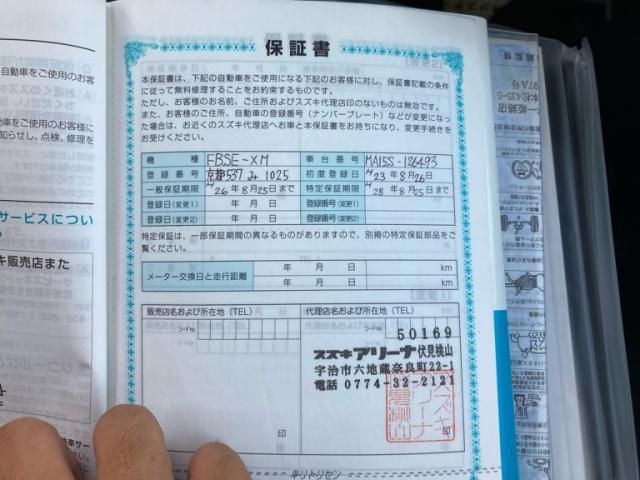 保証書
本保証書は、下記の自動車をご使用になる下記のお客様に対し、保証書記載の条件
に従って無料修理することをお約束するものです。
ただし、お客様のお名前、ご住所およびスズキ代理店印のないものは無効です。
また、お客様のご住所、自動車の登録番号（ナンバープレート）などが変更になっ
た場合は、お近くのスズキ代理店へお車と本保証書をお持ちになり、変更手続きを
お受けください。
機種 FBSE-XM 車台番号 MA15S-126493
登録番号 京都537 み 1025 初度登録日 H23年8月26日
一般保証期限 H26年8月25日まで 特定保証期限 H28年8月25日まで
登録日(変更1) 年 月 日 登録番号(変更1)
登録日(変更2) 年 月 日 登録番号(変更2)
特定保証は、一部保証期間の異なるものがありますので、別掲の特定保証部品をご
覧ください。
メーター交換日と走行距離 年 月 日 km
年 月 日 km
販売店名および所在地（TEL） 代理店名および所在地（TEL）
コードNo. コードNo.
50169
スズキアリーナ伏見桃山
宇治市六地蔵奈良町22-1
電話 0774-32-2121
印 印
キリトリセン
自動車をご使用のお客
動車をご使用のお客様に
知らせし、点検、修理を
サービスについ
キ販売店また